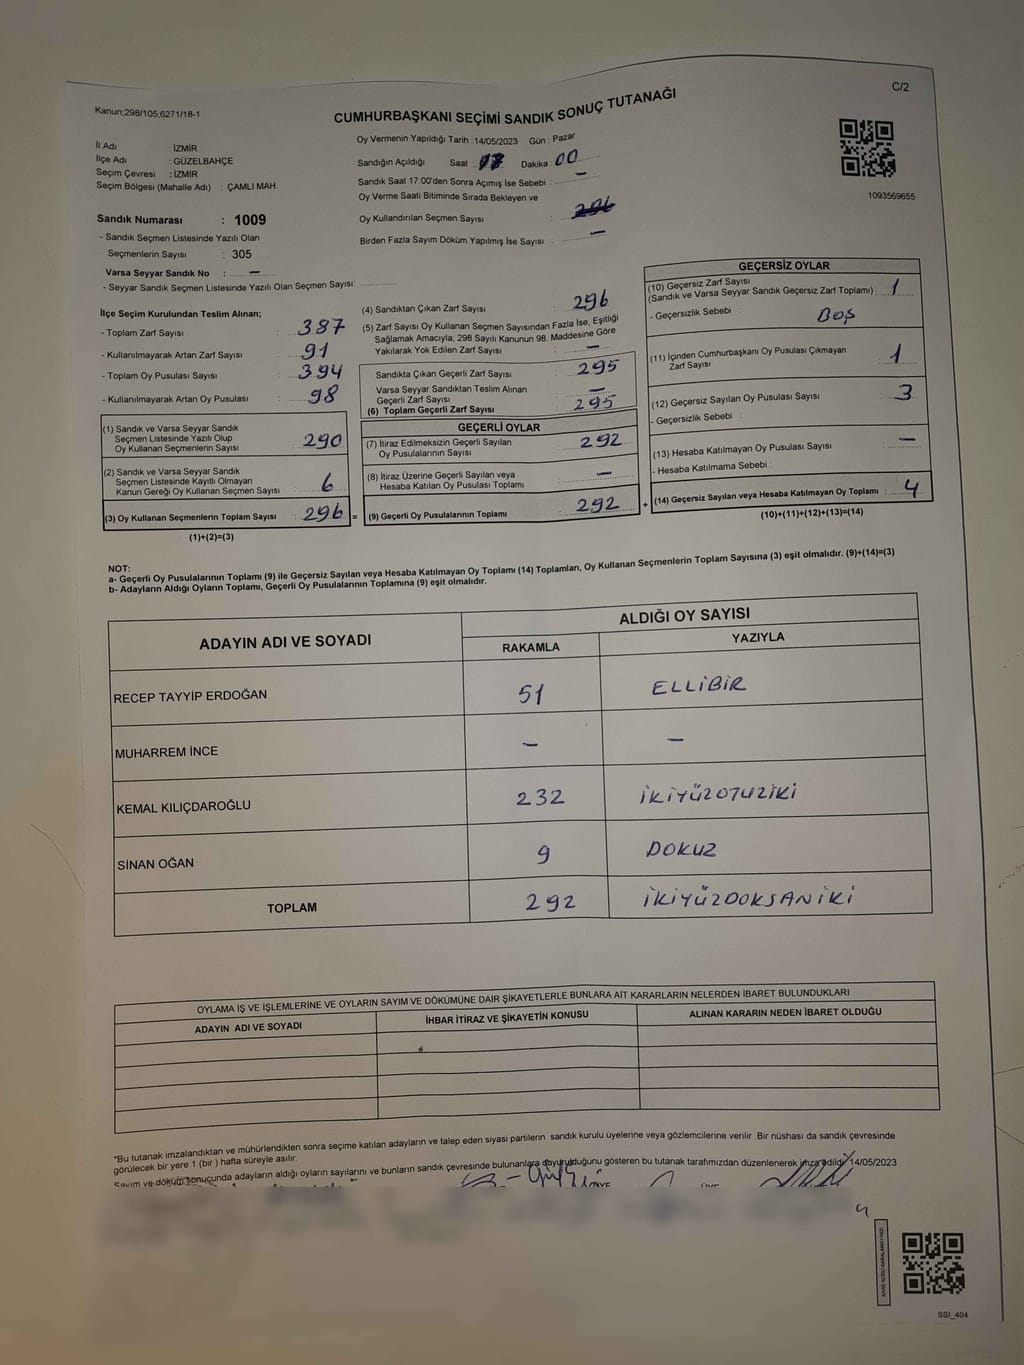 Kanun;298/105;6271/18-1
C/2
CUMHURBAŞKANI SEÇİMİ SANDIK SONUÇ TUTANAĞI
1093569655
İl Adı : İZMİR
İlçe Adı : GÜZELBAHÇE
Seçim Çevresi : İZMİR
Seçim Bölgesi (Mahalle Adı) : ÇAMLI MAH.
Sandık Numarası : 1009
- Sandık Seçmen Listesinde Yazılı Olan
Seçmenlerin Sayısı : 305
Varsa Seyyar Sandık No : —
- Seyyar Sandık Seçmen Listesinde Yazılı Olan Seçmen Sayısı:
Oy Vermenin Yapıldığı Tarih :14/05/2023 Gün : Pazar
Sandığın Açıldığı Saat : Dakika : 00
Sandık Saat 17:00'den Sonra Açımış İse Sebebi : —
Oy Verme Saati Bitiminde Sırada Bekleyen ve
Oy Kullandırılan Seçmen Sayısı : 296
Birden Fazla Sayım Döküm Yapılmış İse Sayısı : —
İlçe Seçim Kurulundan Teslim Alınan;
- Toplam Zarf Sayısı : 387
- Kullanılmayarak Artan Zarf Sayısı : 91
- Toplam Oy Pusulası Sayısı : 394
- Kullanılmayarak Artan Oy Pusulası : 98
(1) Sandık ve Varsa Seyyar Sandık
Seçmen Listesinde Yazılı Olup
Oy Kullanan Seçmenlerin Sayısı : 290
(2) Sandık ve Varsa Seyyar Sandık
Seçmen Listesinde Kayıtlı Olmayan
Kanun Gereği Oy Kullanan Seçmen Sayısı : 6
(3) Oy Kullanan Seçmenlerin Toplam Sayısı : 296 =
(1)+(2)=(3)
(4) Sandıktan Çıkan Zarf Sayısı : 296
(5) Zarf Sayısı Oy Kullanan Seçmen Sayısından Fazla İse, Eşitliği
Sağlamak Amacıyla; 298 Sayılı Kanunun 98. Maddesine Göre
Yakılarak Yok Edilen Zarf Sayısı : —
Sandıkta Çıkan Geçerli Zarf Sayısı : 295
Varsa Seyyar Sandıktan Teslim Alınan
Geçerli Zarf Sayısı : —
(6) Toplam Geçerli Zarf Sayısı : 295
GEÇERLİ OYLAR
(7) İtiraz Edilmeksizin Geçerli Sayılan
Oy Pusulalarının Sayısı : 292
(8) İtiraz Üzerine Geçerli Sayılan veya
Hesaba Katılan Oy Pusulası Toplamı : —
(9) Geçerli Oy Pusulalarının Toplamı : 292 +
GEÇERSİZ OYLAR
(10) Geçersiz Zarf Sayısı
(Sandık ve Varsa Seyyar Sandık Geçersiz Zarf Toplamı) : 1
- Geçersizlik Sebebi : BOŞ
(11) İçinden Cumhurbaşkanı Oy Pusulası Çıkmayan
Zarf Sayısı : 1
(12) Geçersiz Sayılan Oy Pusulası Sayısı : 3
- Geçersizlik Sebebi :
(13) Hesaba Katılmayan Oy Pusulası Sayısı : —
- Hesaba Katılmama Sebebi :
(14) Geçersiz Sayılan veya Hesaba Katılmayan Oy Toplamı : 4
(10)+(11)+(12)+(13)=(14)
NOT:
a- Geçerli Oy Pusulalarının Toplamı (9) ile Geçersiz Sayılan veya Hesaba Katılmayan Oy Toplamı (14) Toplamları, Oy Kullanan Seçmenlerin Toplam Sayısına (3) eşit olmalıdır. (9)+(14)=(3)
b- Adayların Aldığı Oyların Toplamı, Geçerli Oy Pusulalarının Toplamına (9) eşit olmalıdır.
ADAYIN ADI VE SOYADI ALDIĞI OY SAYISI
RAKAMLA YAZIYLA
RECEP TAYYİP ERDOĞAN 51 ELLİBİR
MUHARREM İNCE — —
KEMAL KILIÇDAROĞLU 232 İKİYÜZOTUZİKİ
SİNAN OĞAN 9 DOKUZ
TOPLAM 292 İKİYÜZDOKSANİKİ
OYLAMA İŞ VE İŞLEMLERİNE VE OYLARIN SAYIM VE DÖKÜMÜNE DAİR ŞİKAYETLERLE BUNLARA AİT KARARLARIN NELERDEN İBARET BULUNDUKLARI
ADAYIN ADI VE SOYADI İHBAR İTİRAZ VE ŞİKAYETİN KONUSU ALINAN KARARIN NEDEN İBARET OLDUĞU
*Bu tutanak imzalandıktan ve mühürlendikten sonra seçime katılan adayların ve talep eden siyasi partilerin sandık kurulu üyelerine veya gözlemcilerine verilir. Bir nüshası da sandık çevresinde
görülecek bir yere 1 (bir ) hafta süreyle asılır.
Sayım ve döküm sonucunda adayların aldığı oyların sayılarını ve bunların sandık çevresinde bulunanlara duyurulduğunu gösteren bu tutanak tarafımızdan düzenlenerek imza edildi. 14/05/2023
SSI_404